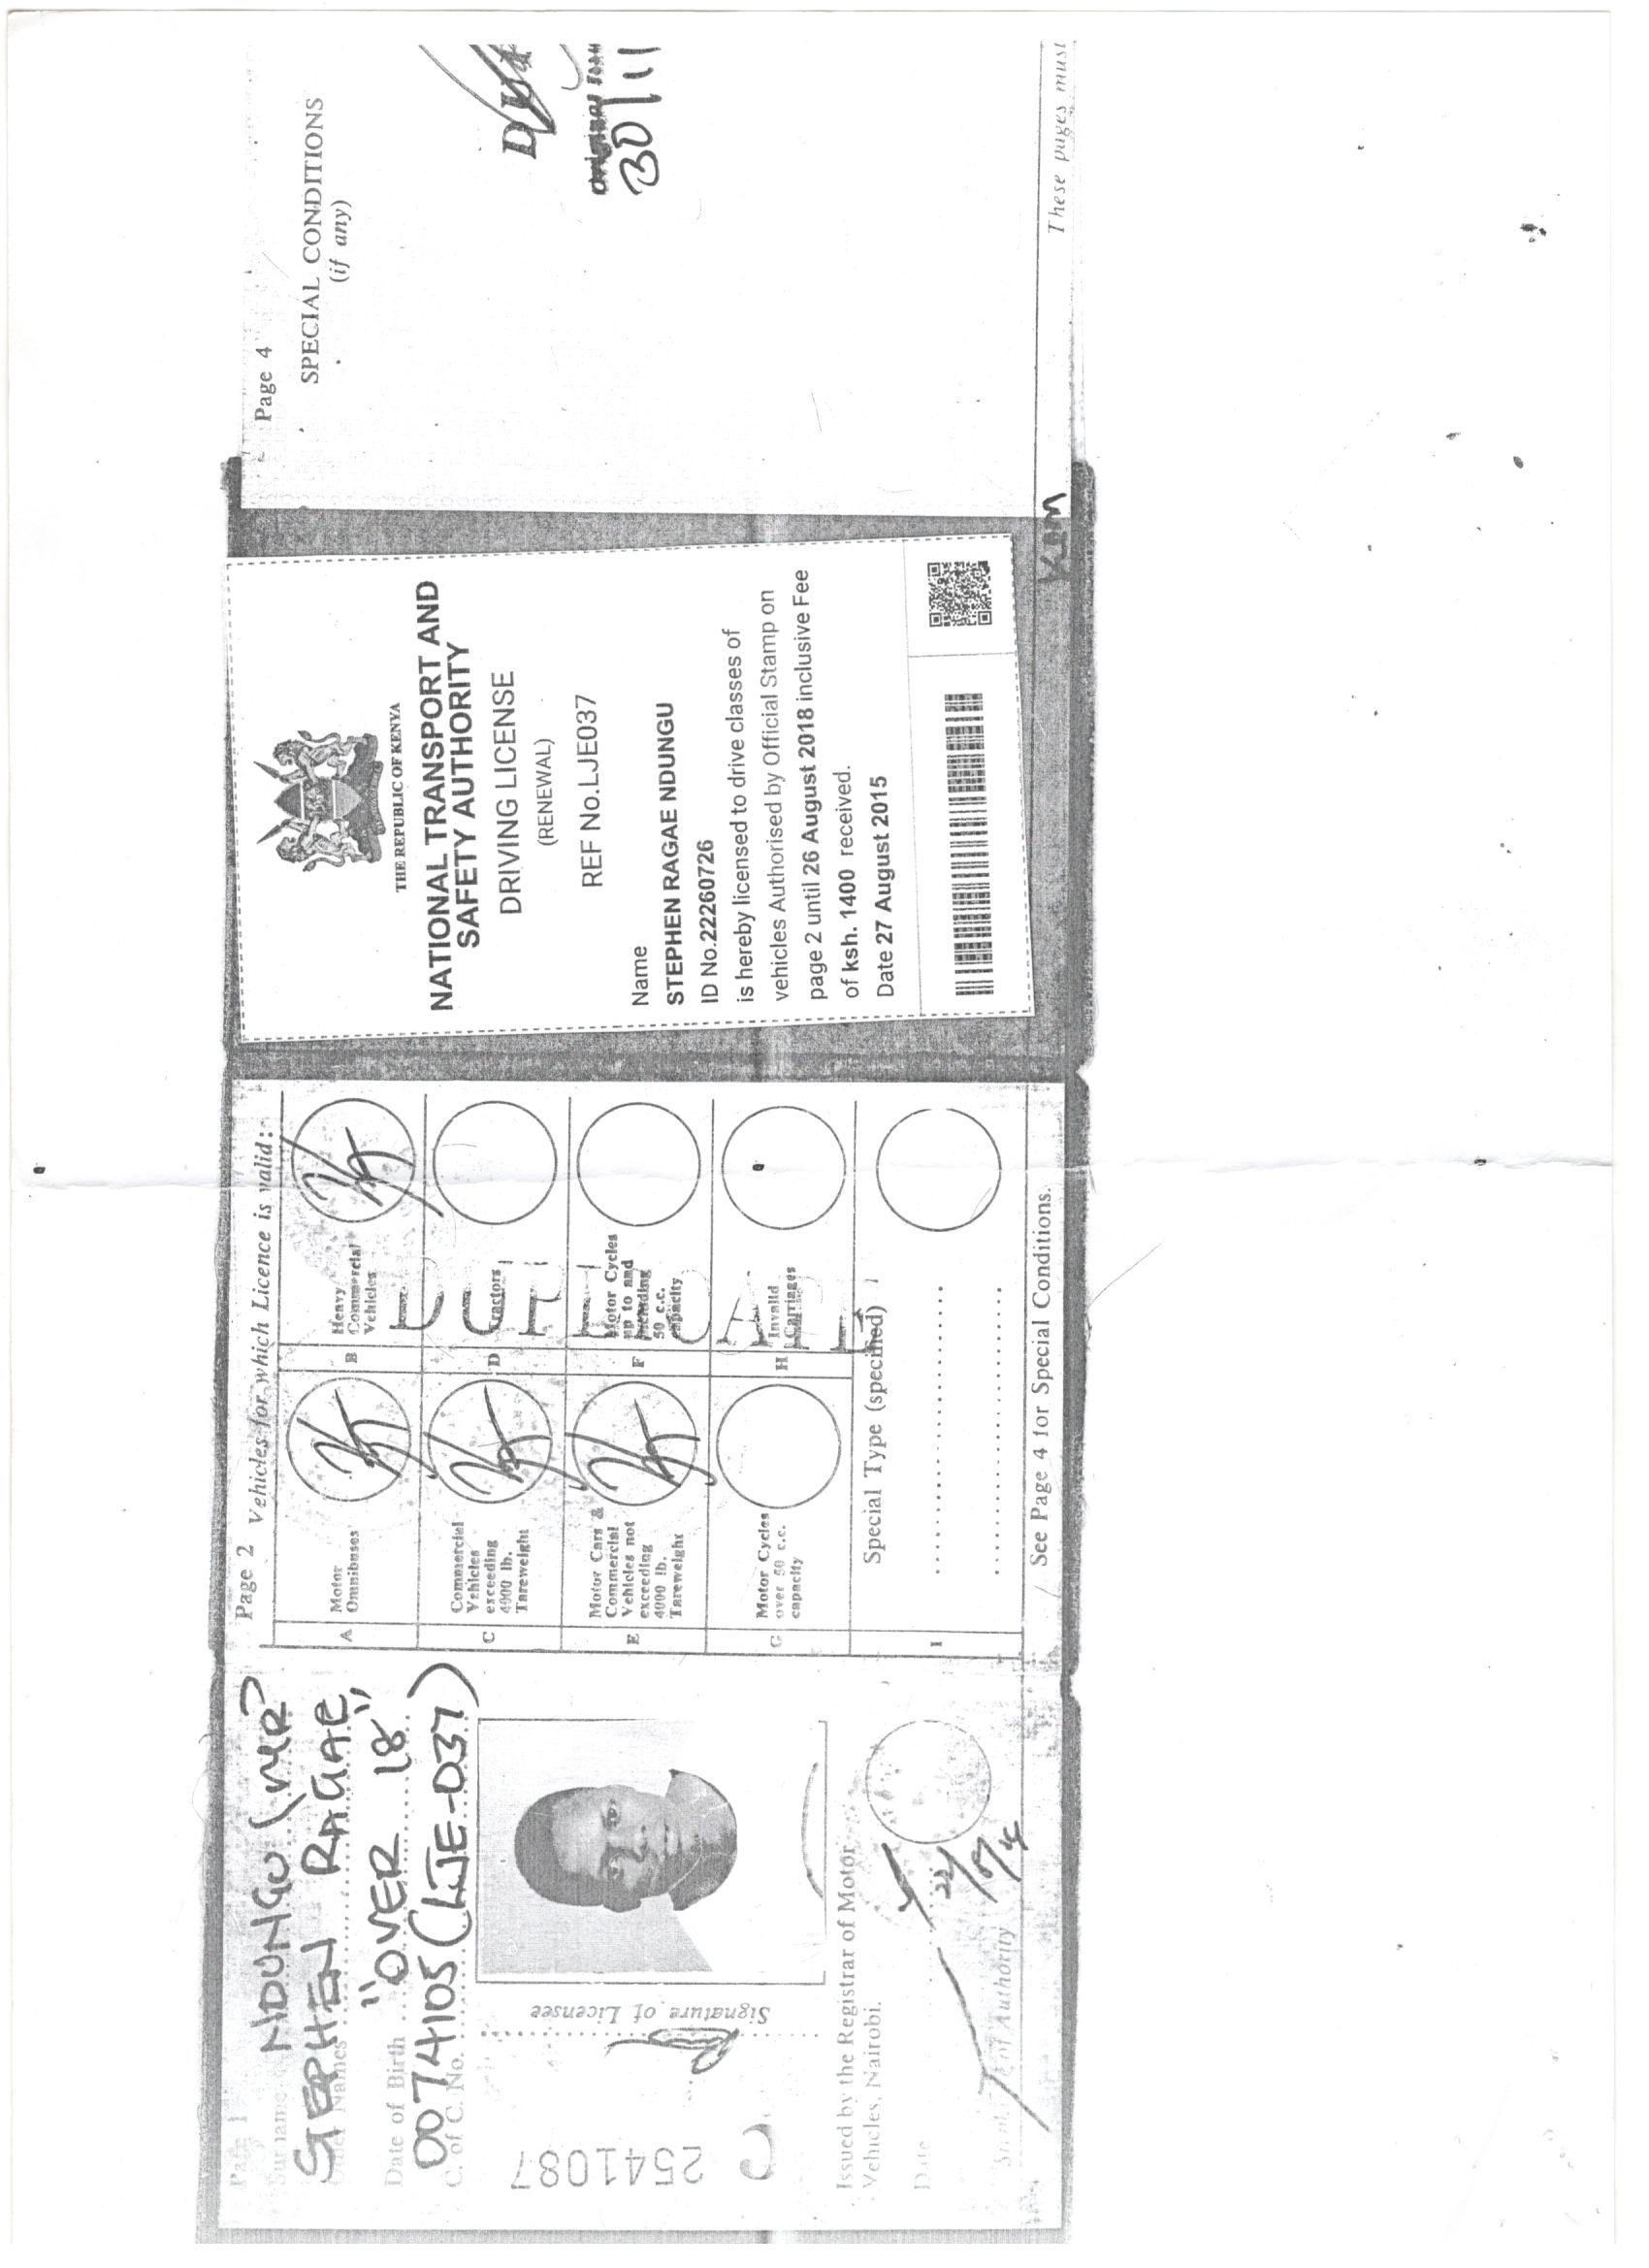 Page 1
Surname NDUNGU (MR)
STEPHEN RAGAE
Other Names
Date of Birth "OVER 18"
C. of C. No. 0074105 (LJE-037)
Signature of Licensee
C 2541087
Issued by the Registrar of Motor
Vehicles, Nairobi.
Date
Page 2
Vehicles for which Licence is valid:
A Motor Omnibuses
B Heavy Commercial Vehicles
C Commercial Vehicles exceeding 4000 lb. Tareweight
D Tractors
E Motor Cars & Commercial Vehicles not exceeding 4000 lb. Tareweight
F Motor Cycles up to and including 50 c.c. capacity
G Motor Cycles over 50 c.c. capacity
H Invalid Carriages
DUPLICATE
I Special Type (specified)
See Page 4 for Special Conditions.
THE REPUBLIC OF KENYA
NATIONAL TRANSPORT AND
SAFETY AUTHORITY
DRIVING LICENSE
(RENEWAL)
REF No.LJE037
Name
STEPHEN RAGAE NDUNGU
ID No.22260726
is hereby licensed to drive classes of
vehicles Authorised by Official Stamp on
page 2 until 26 August 2018 inclusive Fee
of ksh. 1400 received.
Date 27 August 2015
Page 4
SPECIAL CONDITIONS
(if any)
30/11
These pages must